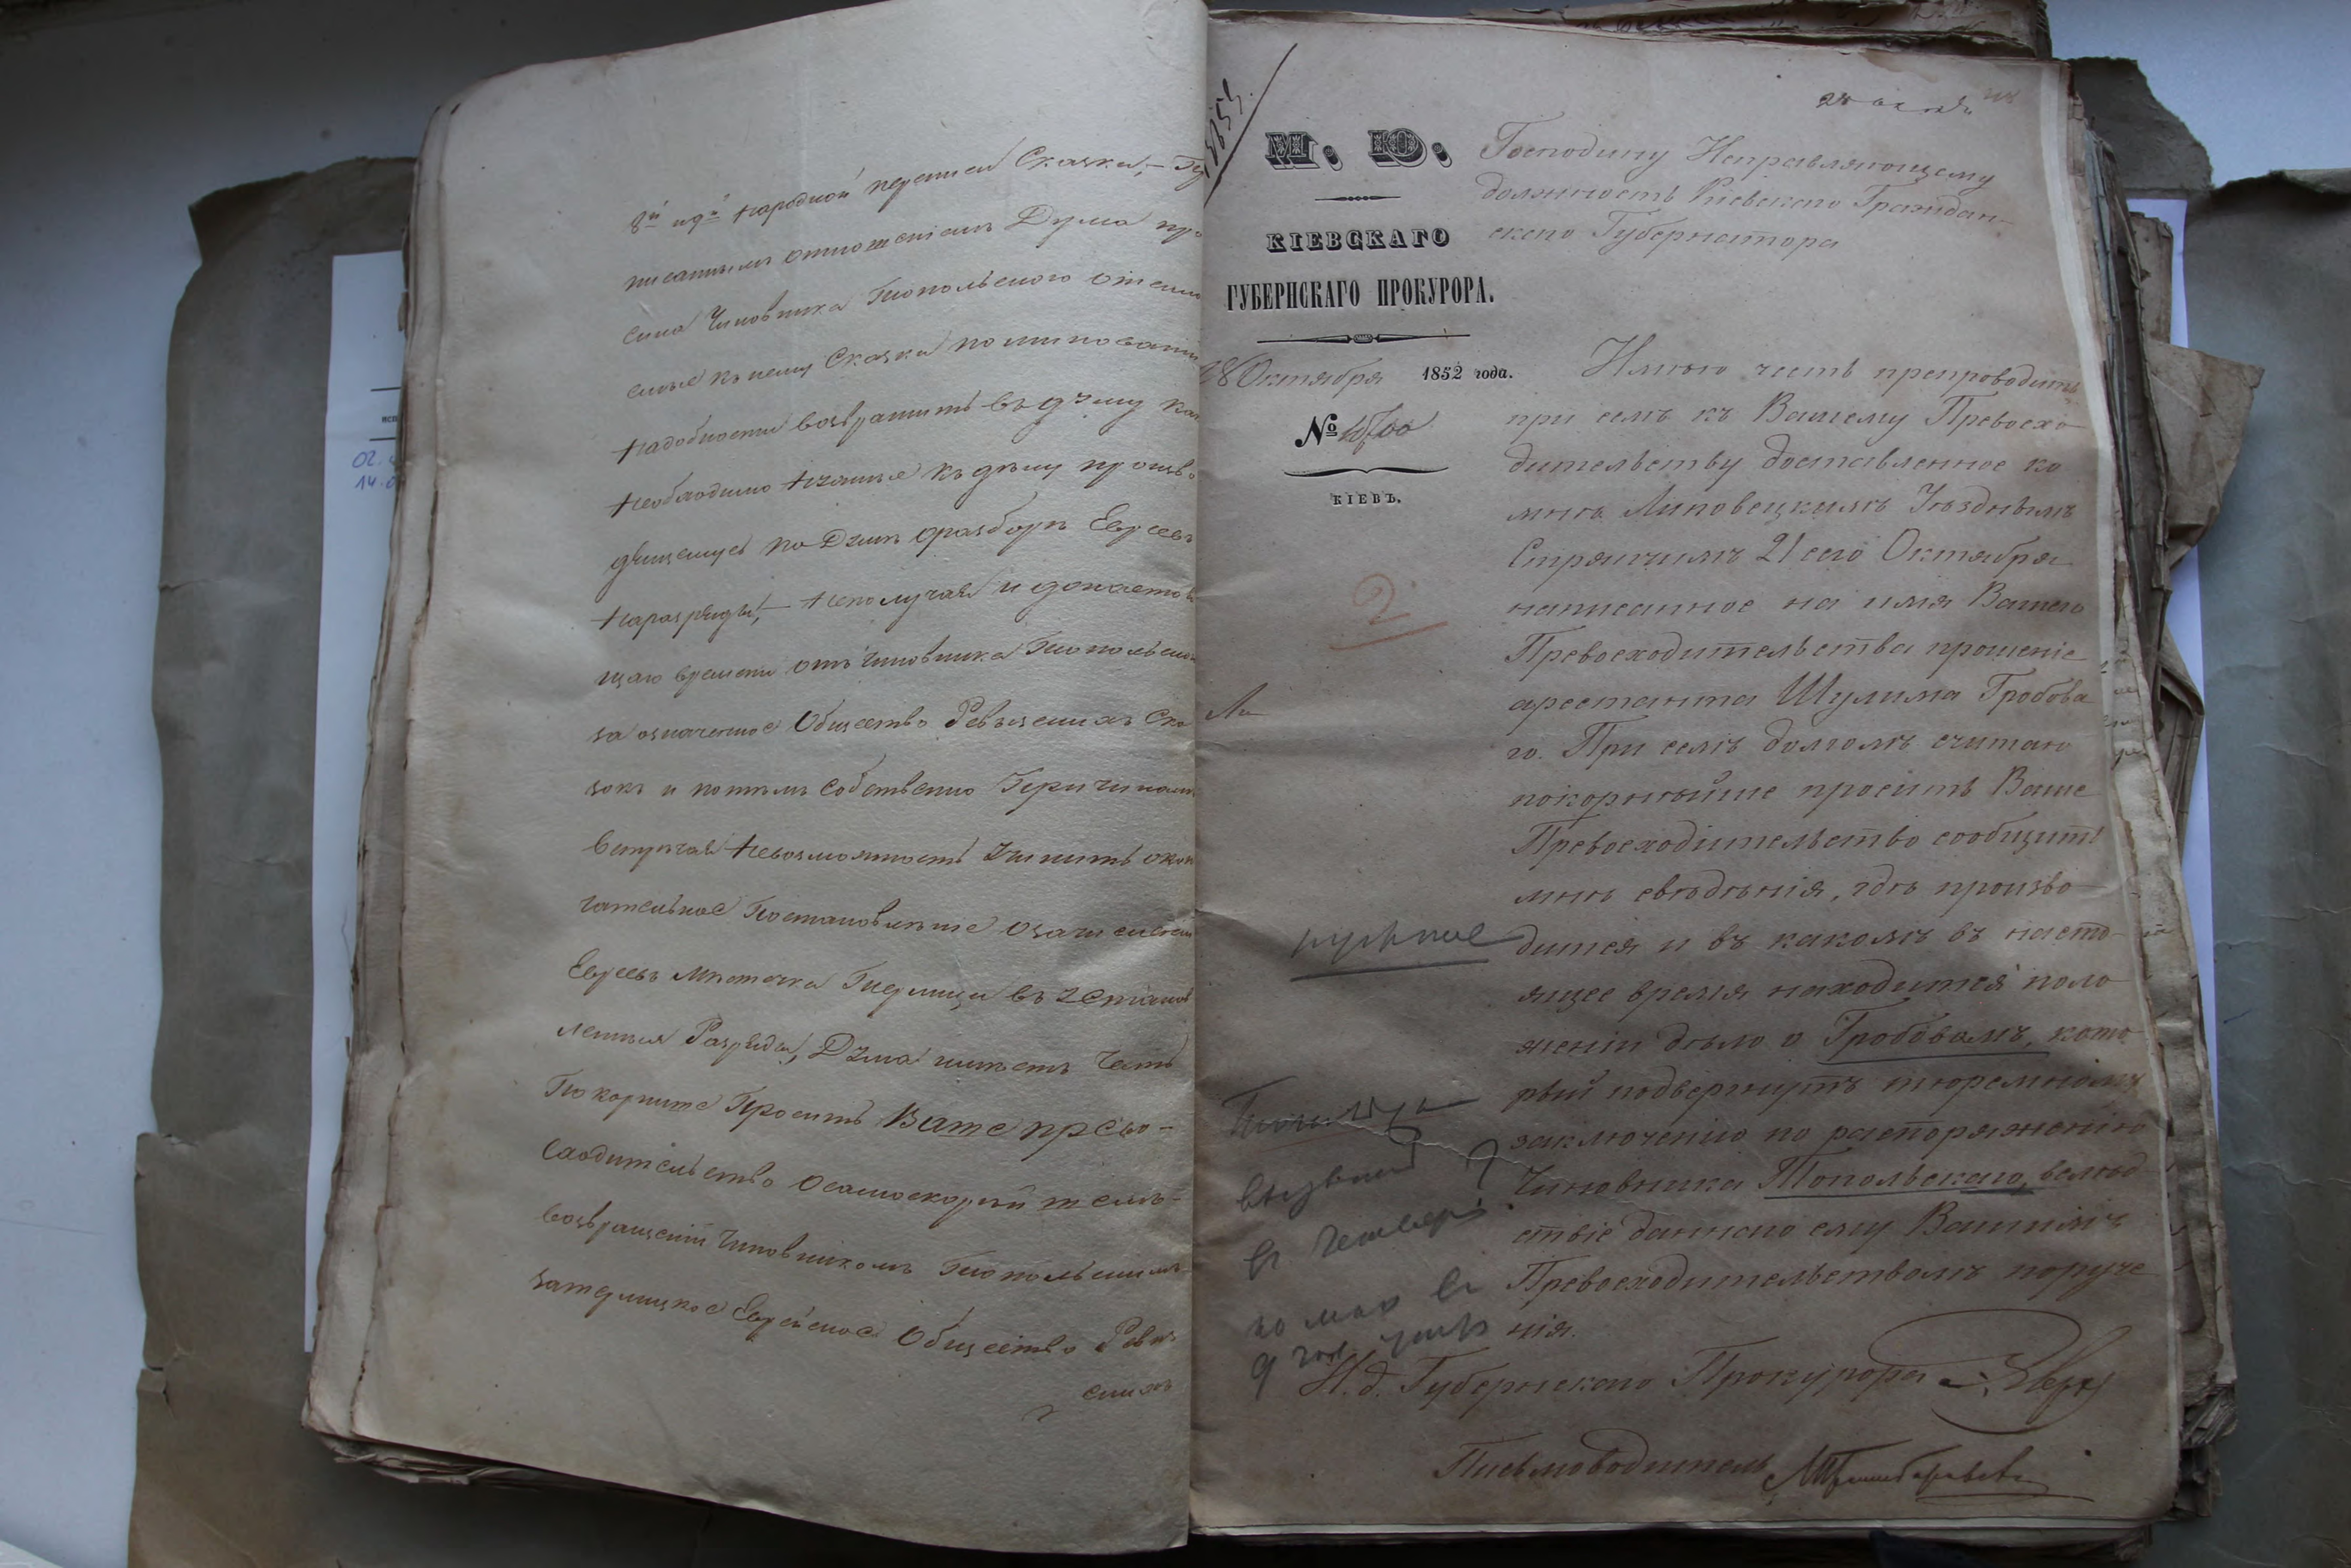 8й и 9й народной переписи Сказки, —
писаннымъ отношеніемъ Дума про
сила Чиновника Топольского
сные къ нему Сказки по минованіи
надобности возвратить въ думу
необходимо нужные къ делу произво
дящемуся по Думе о разборе Евреевъ
на разряды, — неполучая и до насто
щаго времени отъ Чиновника Топольского
за означенное Общество Ревизскихъ Ска
зокъ и потому собственно
встречая невозможность учинить окон
чательное Постановление о зачислении
Евреевъ местечка въ установ
ленныя Разряды, Дума имеетъ честь
Покорнейше Просить Ваше прево-
сходительство о самоскорейшемъ
возвращении Чиновникомъ Топольскимъ
за Еврейское Общество Ревиз
скихъ
М. Ю.
КІЕВСКАГО
ГУБЕРНСКАГО ПРОКУРОРА.
28 Октября 1852 года.
№
КІЕВЪ.
2
Господину Исправляющему
должность Кіевскаго Граждан-
скаго Губернатора
Имѣю честь препроводить
при семъ къ Вашему Превосхо-
дительству доставленное ко
мнѣ Липовецкимъ Уѣзднымъ
Стряпчимъ 21 сего Октября
написанное на имя Вашего
Превосходительства прошеніе
арестанта Шулима Гробова
го. При семъ долгомъ считаю
покорнѣйше просить Ваше
Превосходительство сообщить
мнѣ свѣдѣнія, гдѣ произво-
дится и въ какомъ въ насто-
ящее время находится поло
женіи дѣло о Гробовамъ, кото
рый подвергнутъ тюремному
заключенію по распоряженію
Чиновника Топольскаго, вслѣд-
ствіе даннаго ему Вашимъ
Превосходительствомъ поруче
нія.
И. д. Губернскаго Прокурора
Письмоводитель
нужное
въ четвергъ
ко мне въ
9 час. утра